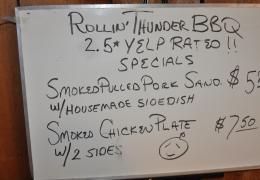 ROLLIN' THUNDER BBQ
2.5* YELP RATED !!
SPECIALS
SMOKED PULLED PORK SAND. $ 5
W/ HOUSEMADE SIDEDISH
SMOKED CHICKEN PLATE $7.50
W/ 2 SIDES